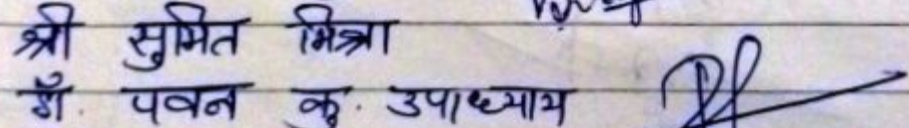 श्री सुमित मिश्रा
डॉ. पवन कु. उपाध्याय